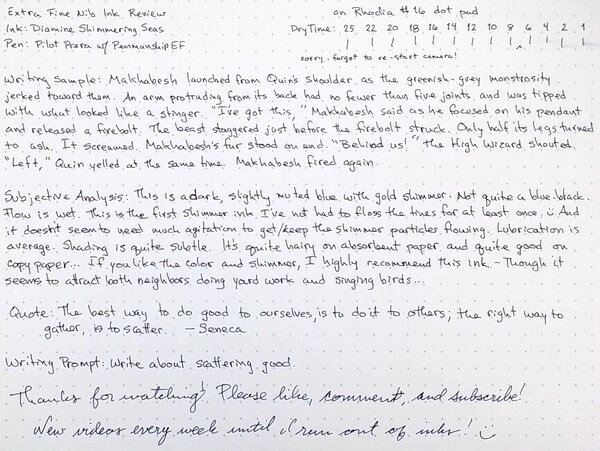 Extra Fine Nib Ink Review
on Rhodia #16 dot pad
Ink: Diamine Shimmering Seas
Dry Time: 25 22 20 18 16 14 12 10 8 6 4 2 1
Pen: Pilot Prera w/ Penmanship EF
sorry. forgot to re-start camera!
Writing Sample: Makhabesh launched from Quin's shoulder as the greenish-grey monstrosity
jerked toward them. An arm protruding from its back had no fewer than five joints and was tipped
with what looked like a stinger. "I've got this," Makhabesh said as he focused on his pendant
and released a firebolt. The beast staggered just before the firebolt struck. Only half its legs turned
to ash. It screamed. Makhabesh's fur stood on end. "Behind us!" the High Wizard shouted.
"Left," Quin yelled at the same time. Makhabesh fired again.
Subjective Analysis: This is a dark, slightly muted blue with gold shimmer. Not quite a blue-black.
Flow is wet. This is the first shimmer ink I've not had to floss the tines for at least once. :) And
it doesn't seem to need much agitation to get/keep the shimmer particles flowing. Lubrication is
average. Shading is quite subtle. It's quite hairy on absorbent paper and quite good on
copy paper... If you like the color and shimmer, I highly recommend this ink - Though it
seems to attract both neighbors doing yard work and singing birds...
Quote: The best way to do good to ourselves, is to do it to others; the right way to
gather, is to scatter. — Seneca
Writing Prompt: Write about scattering good.
Thanks for watching! Please like, comment, and subscribe!
New videos every week until I run out of inks! :)